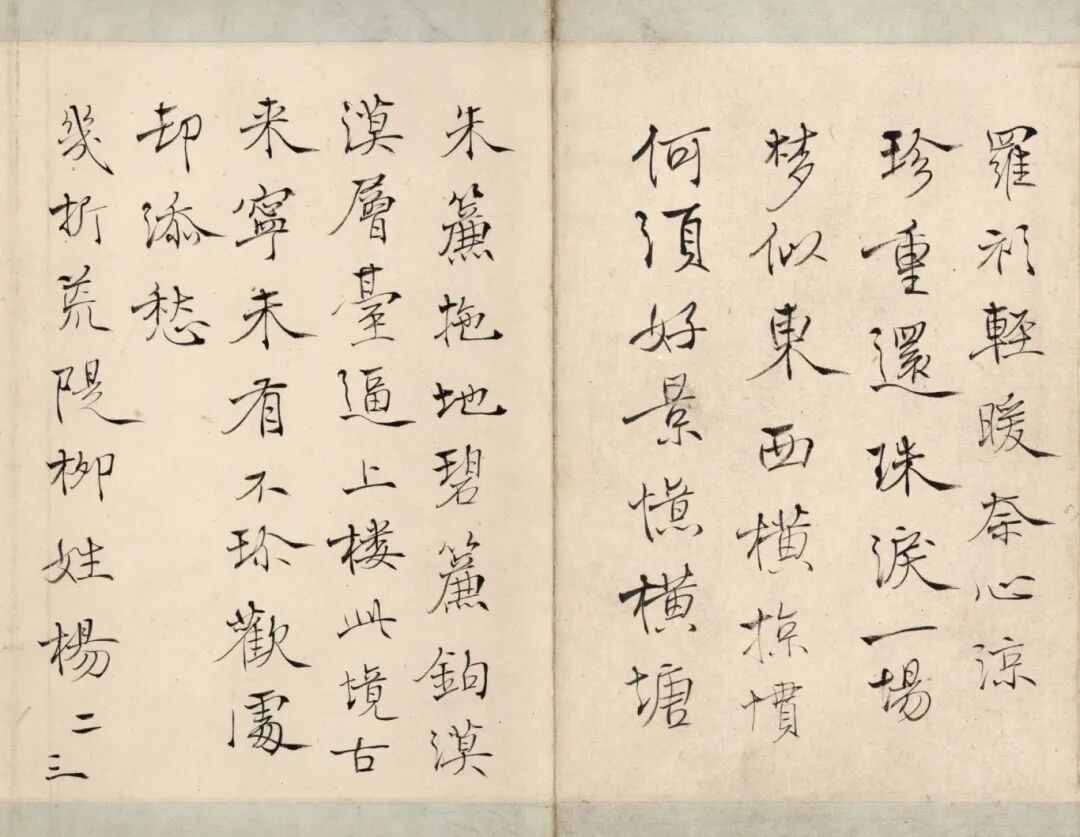 羅衫輕暖奈心涼
珍重還珠淚一場
梦似東西橫掠慣
何須好景憶橫塘
朱簾拖地碧簾鉤漠
漠層臺逼上楼此境古
来寧未有不珍歡處
却添愁
幾折荒隄柳姓楊二三